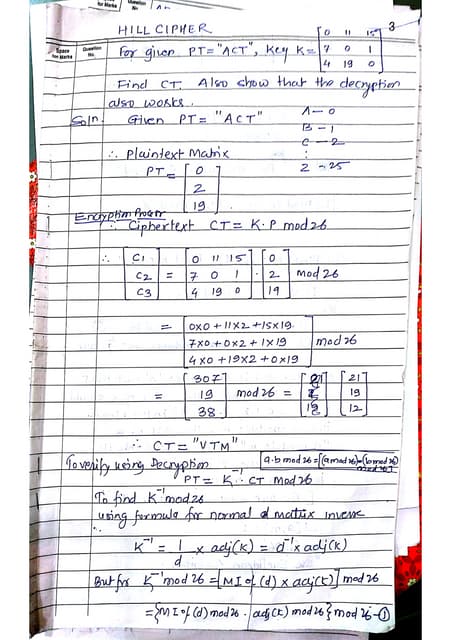 for Marks
Question No.
3
HILL CIPHER
Space for Marks
Question No.
For given PT= "ACT", Key K= [0 11 15
7 0 1
4 19 0]
Find CT. Also show that the decryption
also works.
Soln. Given PT= "ACT"
A-0
B-1
C-2
:
Z-25
∴ Plaintext Matrix
PT = [0
2
19]
Encryption Process
∴ Ciphertext CT= K.P mod 26
∴ [C1
C2
C3] = [0 11 15
7 0 1
4 19 0] . [0
2
19] mod 26
= [0x0 + 11x2 + 15x19
7x0 + 0x2 + 1x19
4x0 + 19x2 + 0x19] mod 26
= [307
19
38] mod 26 = [21
19
12]
∴ CT= "VTM"
To verify using Decryption
a.b mod 26 = [(a mod 26) × (b mod 26)] mod 26
PT= K⁻¹. CT mod 26
To find K⁻¹ mod 26
using formula for normal matrix inverse
∴
K⁻¹ = 1/d x adj(k) = d⁻¹ x adj(k)
But for K⁻¹ mod 26 = [MI of (d) x adj(k)] mod 26
= {MI of (d) mod 26 . adj(k) mod 26} mod 26 -①